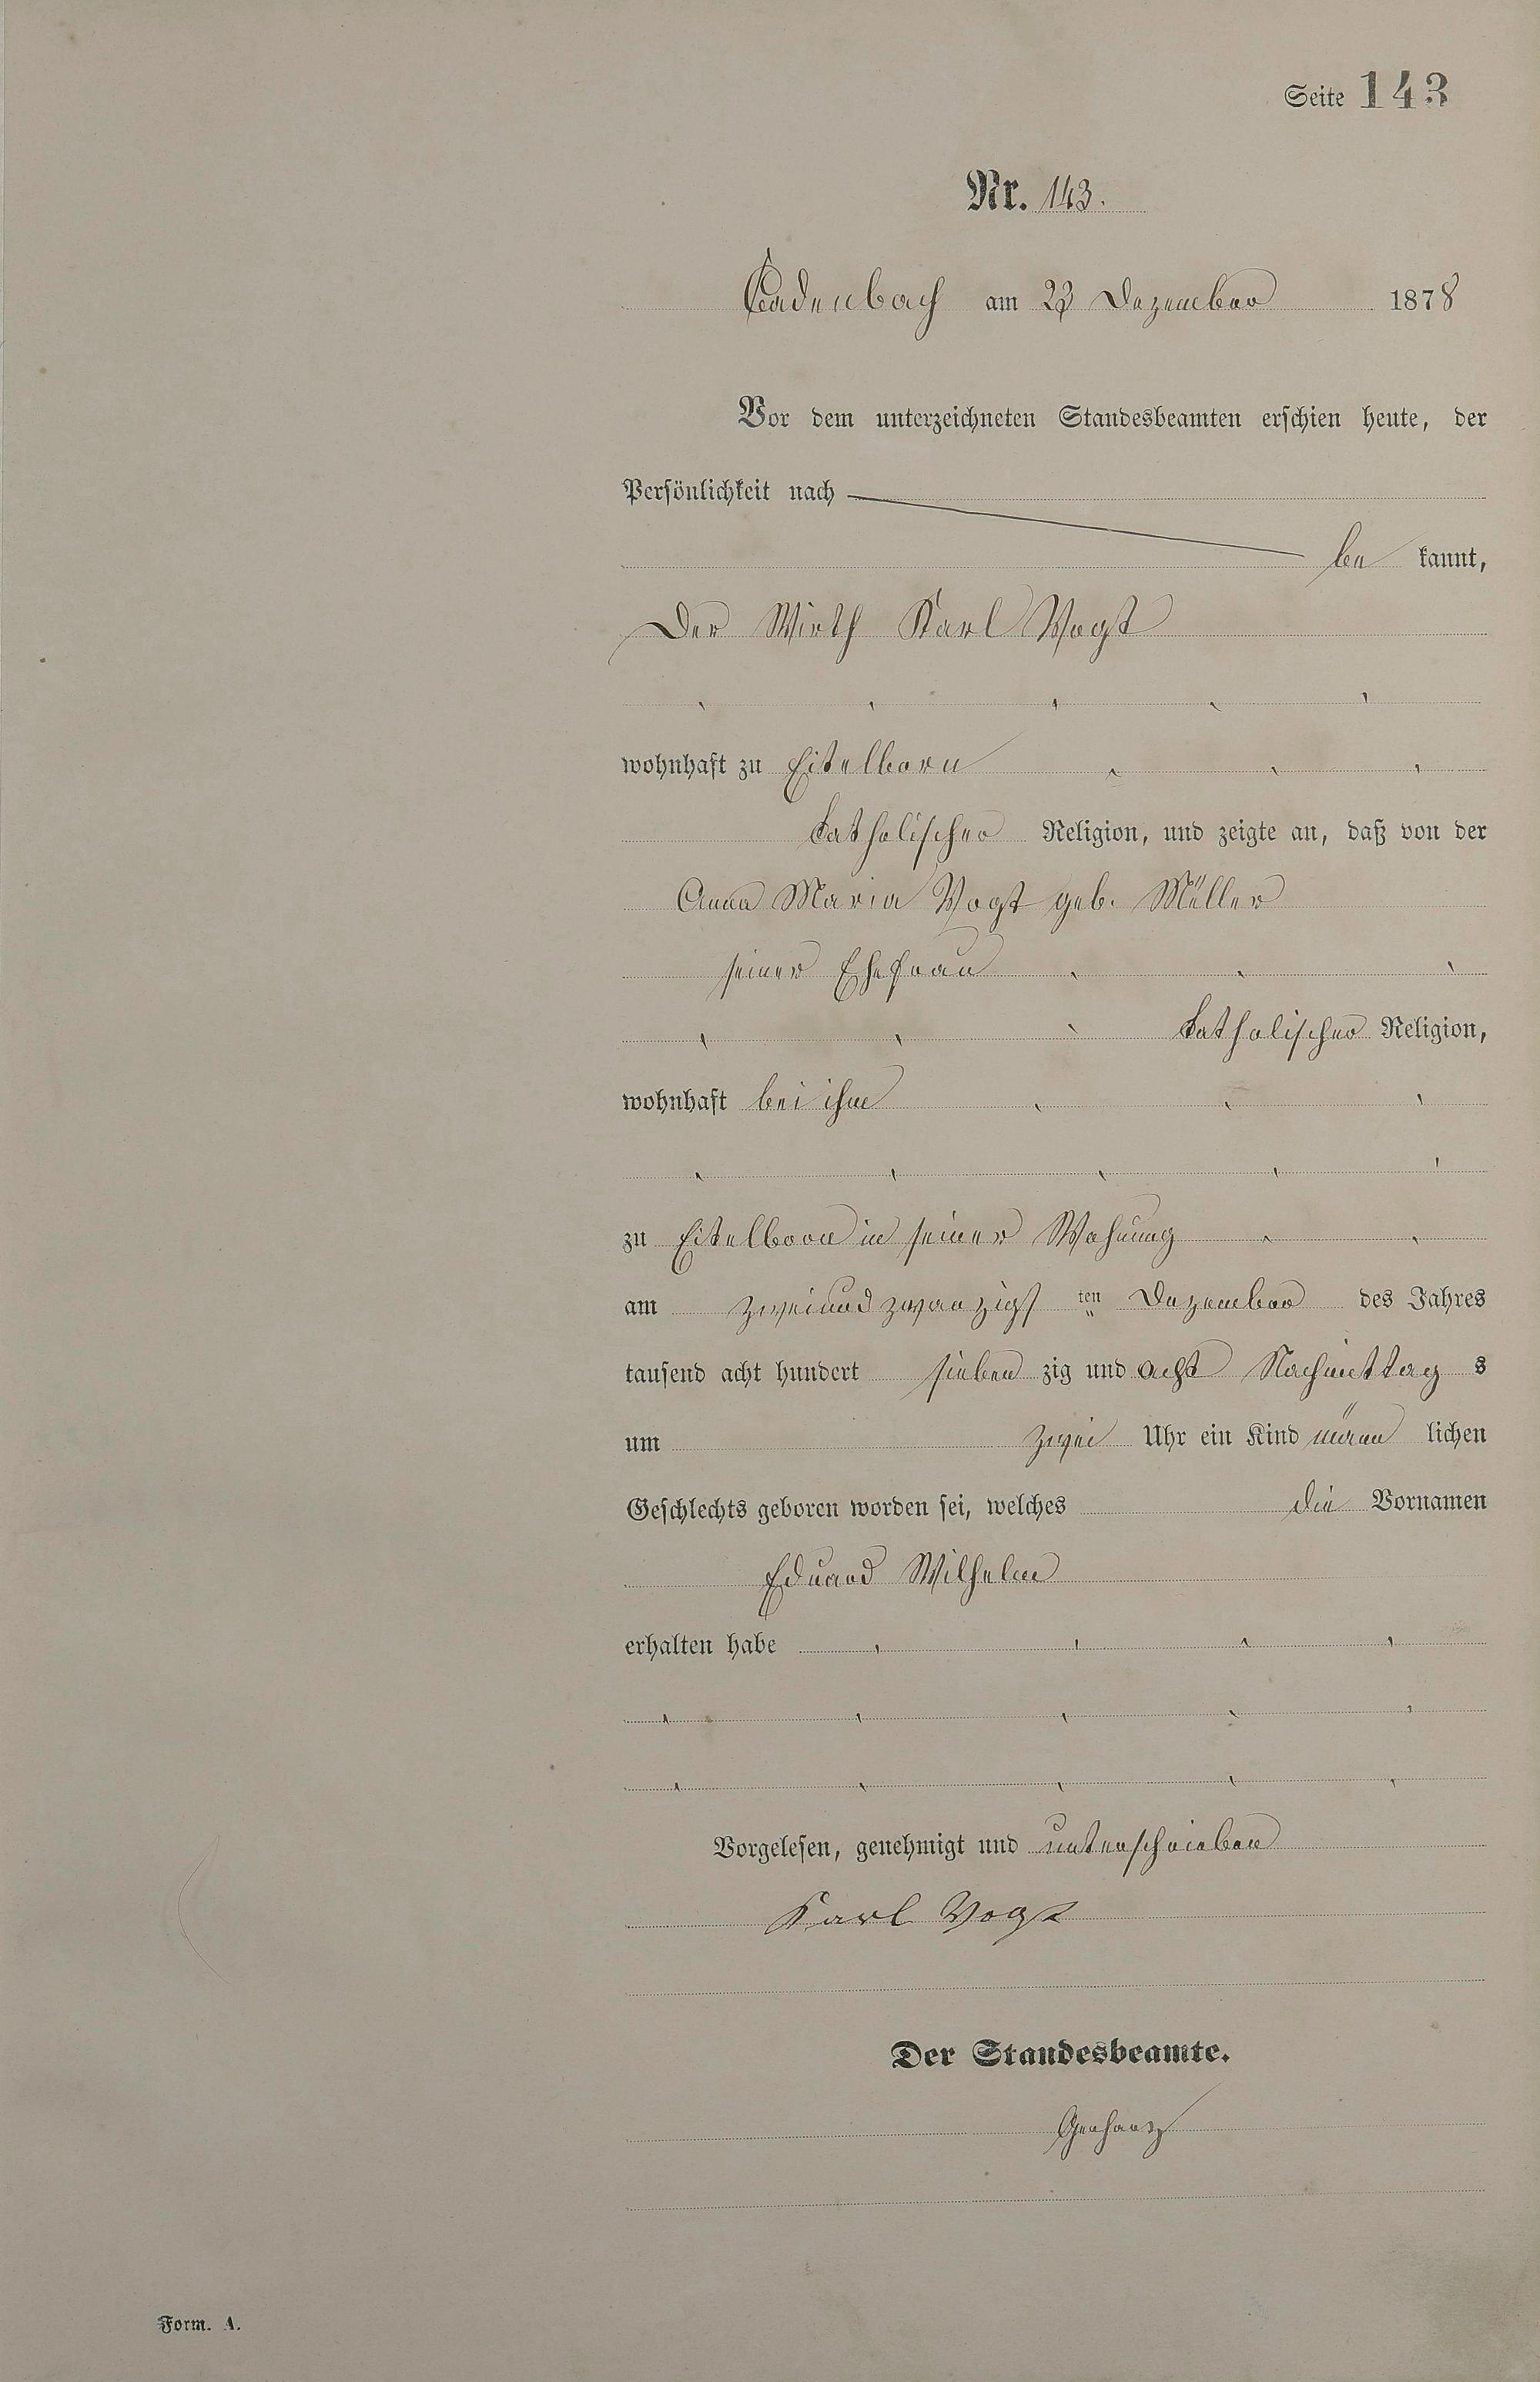 Seite 143
Nr. 143.
Cadenbach am 23 Dezember 1878
Vor dem unterzeichneten Standesbeamten erschien heute, der
Persönlichkeit nach
be kannt,
Der Wirth Karl Vogt
wohnhaft zu Eitelborn
katholischer Religion, und zeigte an, daß von der
Anna Maria Vogt geb. Müller
seiner Ehefrau
katholischer Religion,
wohnhaft bei ihm
zu Eitelborn in seiner Wohnung
am zweiundzwanzigs ten Dezember des Jahres
tausend acht hundert sieben zig und acht Nachmittag s
um zwei Uhr ein Kind männ lichen
Geschlechts geboren worden sei, welches die Vornamen
Eduard Wilhelm
erhalten habe
Vorgelesen, genehmigt und unterschrieben
Karl Vogt
Der Standesbeamte.
Form. A.